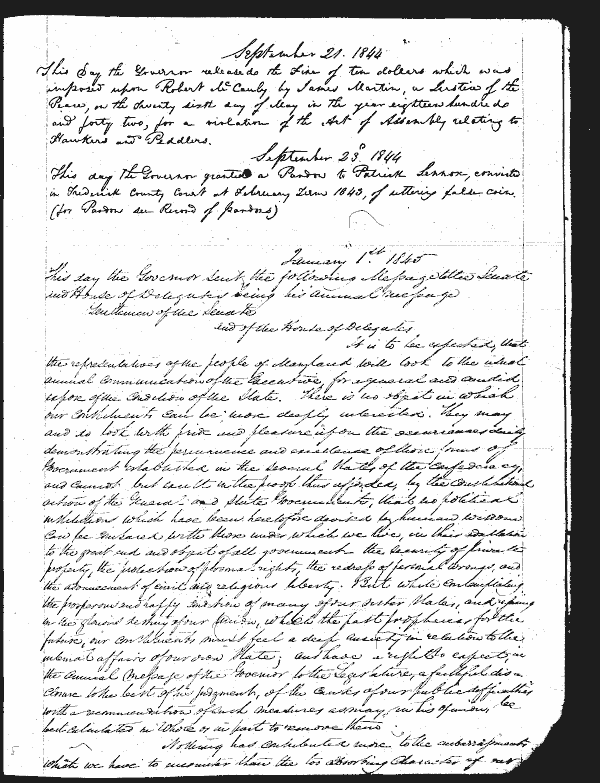 September 21. 1844
This day the Governor released the Fine of ten dollars which was
imposed upon Robert McCauly by James Martin, a Justice of the
Peace, on the twenty sixth day of May in the year eighteen hundred
and forty two, for a violation of the Act of Assembly relating to
Hawkers and Peddlers.
September 23d 1844
This day the Governor granted a Pardon to Patrick Lennox, convicted
in Frederick County Court at February Term 1843, of uttering false coin.
(for Pardon see Record of pardons)
January 1st 1845
This day the Governor sent the following Message to the Senate
and House of Delegates being his annual message
Gentlemen of the Senate
and of the House of Delegates
It is to be expected, that
the representatives of the people of Maryland will look to the usual
annual communication of the Executive, for a general and candid
expose of the condition of the State. There is no object in which
our constituents can be more deeply interested. They may
and do look with pride and pleasure upon the occurrences daily
demonstrating the permanence and excellence of those forms of
Government established in the several States of the Confederacy,
and cannot but exult in the proofs thus afforded, by the constitutional
action of the General and State Governments, that no political
institutions which have been heretofore devised by human wisdom
can be compared with those under which we live, in their adaptation
to the great end and object of all government the security of private
property, the protection of personal rights, the redress of personal wrongs, and
the advancement of civil and religious liberty. But while contemplating
the prosperous and happy condition of many of our sister States, and rejoicing
in the glorious destiny of our Union, which the past prophecies for the
future, our constituents must feel a deep anxiety in relation to the
internal affairs of our own State; and have a right to expect, in
the annual message of the Governor to the Legislature, a faithful dis
closure to the best of his judgment, of the causes of our public difficulties
with a recommendation of such measures as may, in his opinion, be
best calculated in whole or in part to remove them.
Nothing has contributed more to the embarrassments
which we have to encounter than the too absorbing character of our